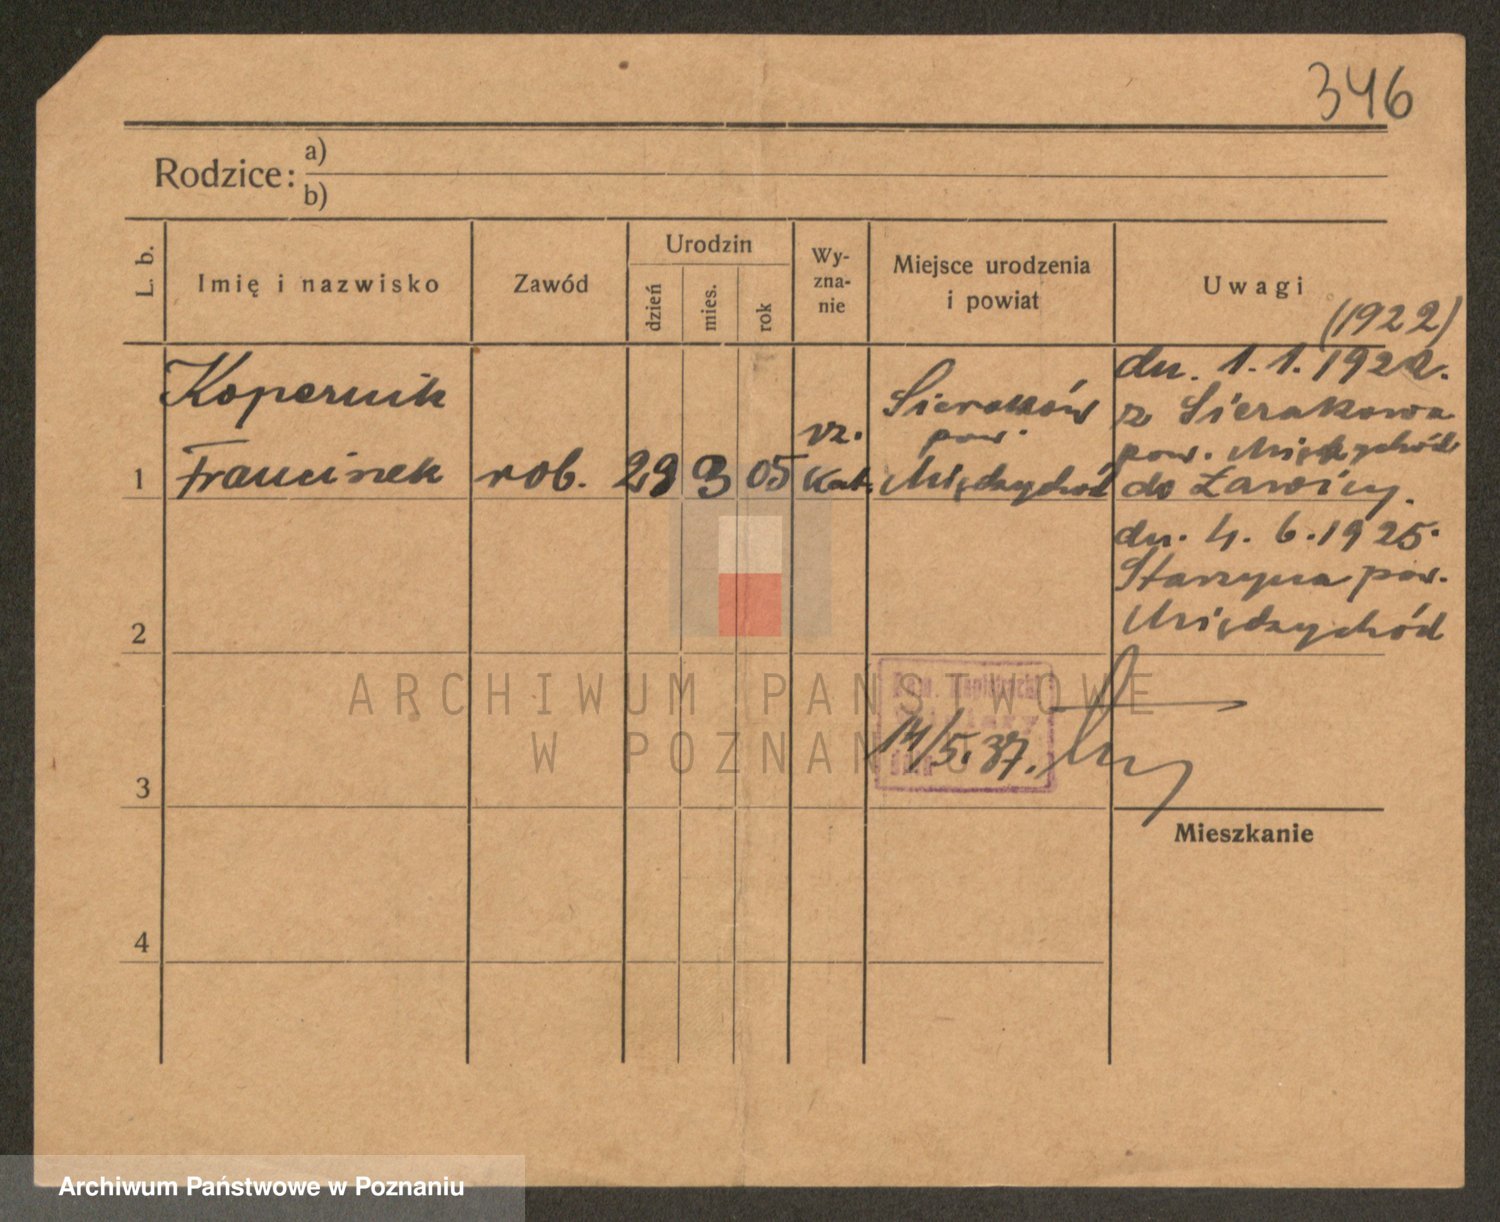 346
Rodzice:
a)
b)
L. b.
Imię i nazwisko
Zawód
Urodzin
dzień
mies.
rok
Wy-
zna-
nie
Miejsce urodzenia
i powiat
Uwagi
(1922)
Kopernik
Franciszek
1
rob.
29
3
05
rz.
Kat.
Sieraków
pow.
Międzychód
dn. 1.1.1922.
z Sierakowa
pow. Międzychód
do Ławicy.
dn. 4. 6. 1925.
pow.
Międzychód
2
14/5.37.
3
Mieszkanie
4
ARCHIWUM PAŃSTWOWE
W POZNANIU
Archiwum Państwowe w Poznaniu